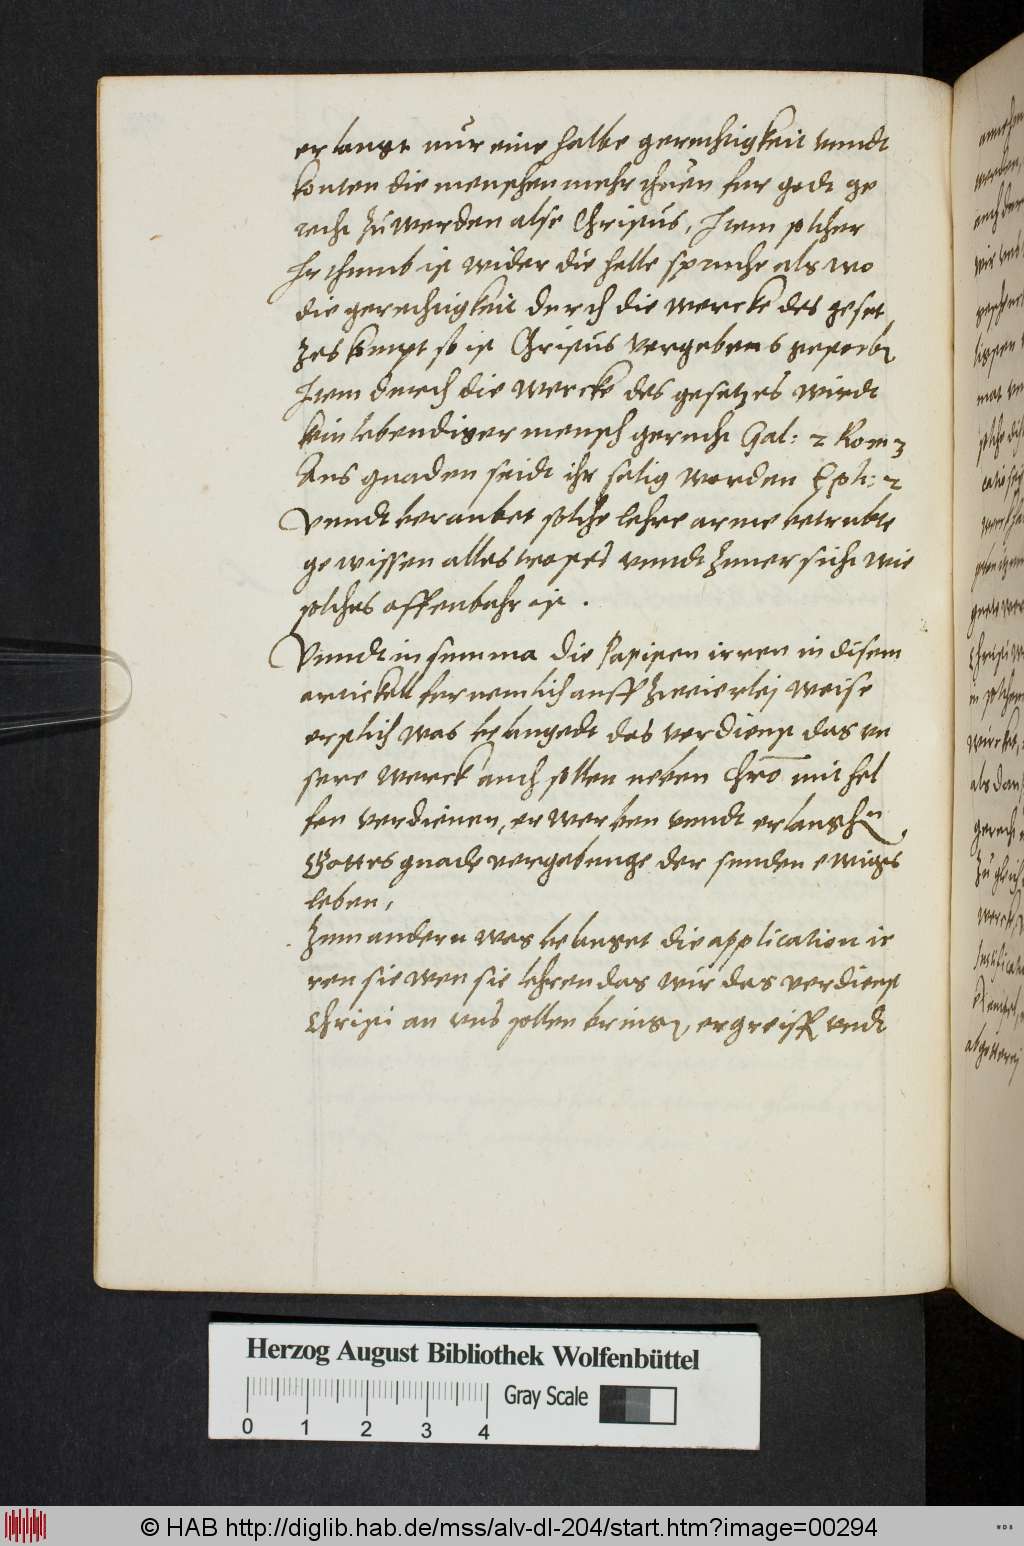 erlangt nur eine halbe gerechtigkeit vnndt
konten die menschen mehr thuen fur godt ge
recht zu werden alse Christus, Item solcher
Irthumb ist wider die helle spruche als wo
die gerechtigkeit durch die wercke des geset
zes kompt so ist Christus vergebens gestorbn
Item durch die wercke des gesetzes wirdt
kein lebendiger mensch gerecht Gal: 2 Rom 3
Aus gnaden seidt ihr selig worden Eph: 2
Vnndt beraubet solche lehre arme betrubte
gewissen alles trostes vnndt zuuersicht wie
solches offenbahr ist.
Vnndt in summa die Papisten irren in disem
artickell furnemlich auff zweierlej weise
erstlich was belangedt das verdienst das vn
sere werck auch sollen neben Chro mit hel
fen verdienen, erwerben vnndt erlangen,
Gottes gnade vergebunge der sunden ewiges
leben,
Zum andern was belanget die application ir
ren sie wen sie lehren das wir das verdienst
Christi an vns sollen bringn, ergreiffn vndt
Herzog August Bibliothek Wolfenbüttel
Gray Scale
0 1 2 3 4
© HAB http://diglib.hab.de/mss/alv-dl-204/start.htm?image=00294